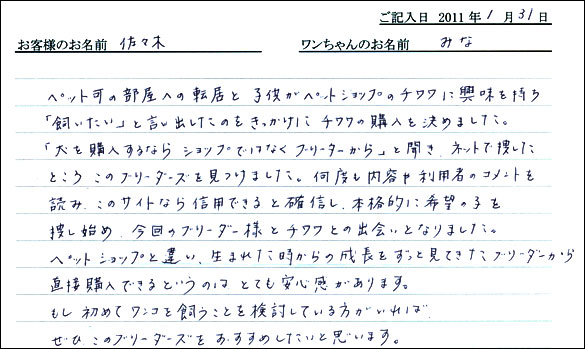 ご記入日 2011年 1 月 31 日
お客様のお名前 佐々木 ワンちゃんのお名前 みな
ペット可の部屋への転居と 子供がペットショップのチワワに興味を持ち
「飼いたい」と言い出したのをきっかけに チワワの購入を決めました。
「犬を購入するなら ショップではなくブリーダーから」と聞き、ネットで捜した
ところ このブリーダーズを見つけました。何度も内容や利用者のコメントを
読み、このサイトなら信用できると確信し、本格的に希望の子を
捜し始め、今回のブリーダー様とチワワとの出会いとなりました。
ペットショップと違い、生まれた時からの成長をずっと見てきたブリーダーから
直接購入できるというのは とても安心感があります。
もし 初めてワンコを飼うことを検討している方がいれば、
ぜひ このブリーダーズをおすすめしたいと思います。